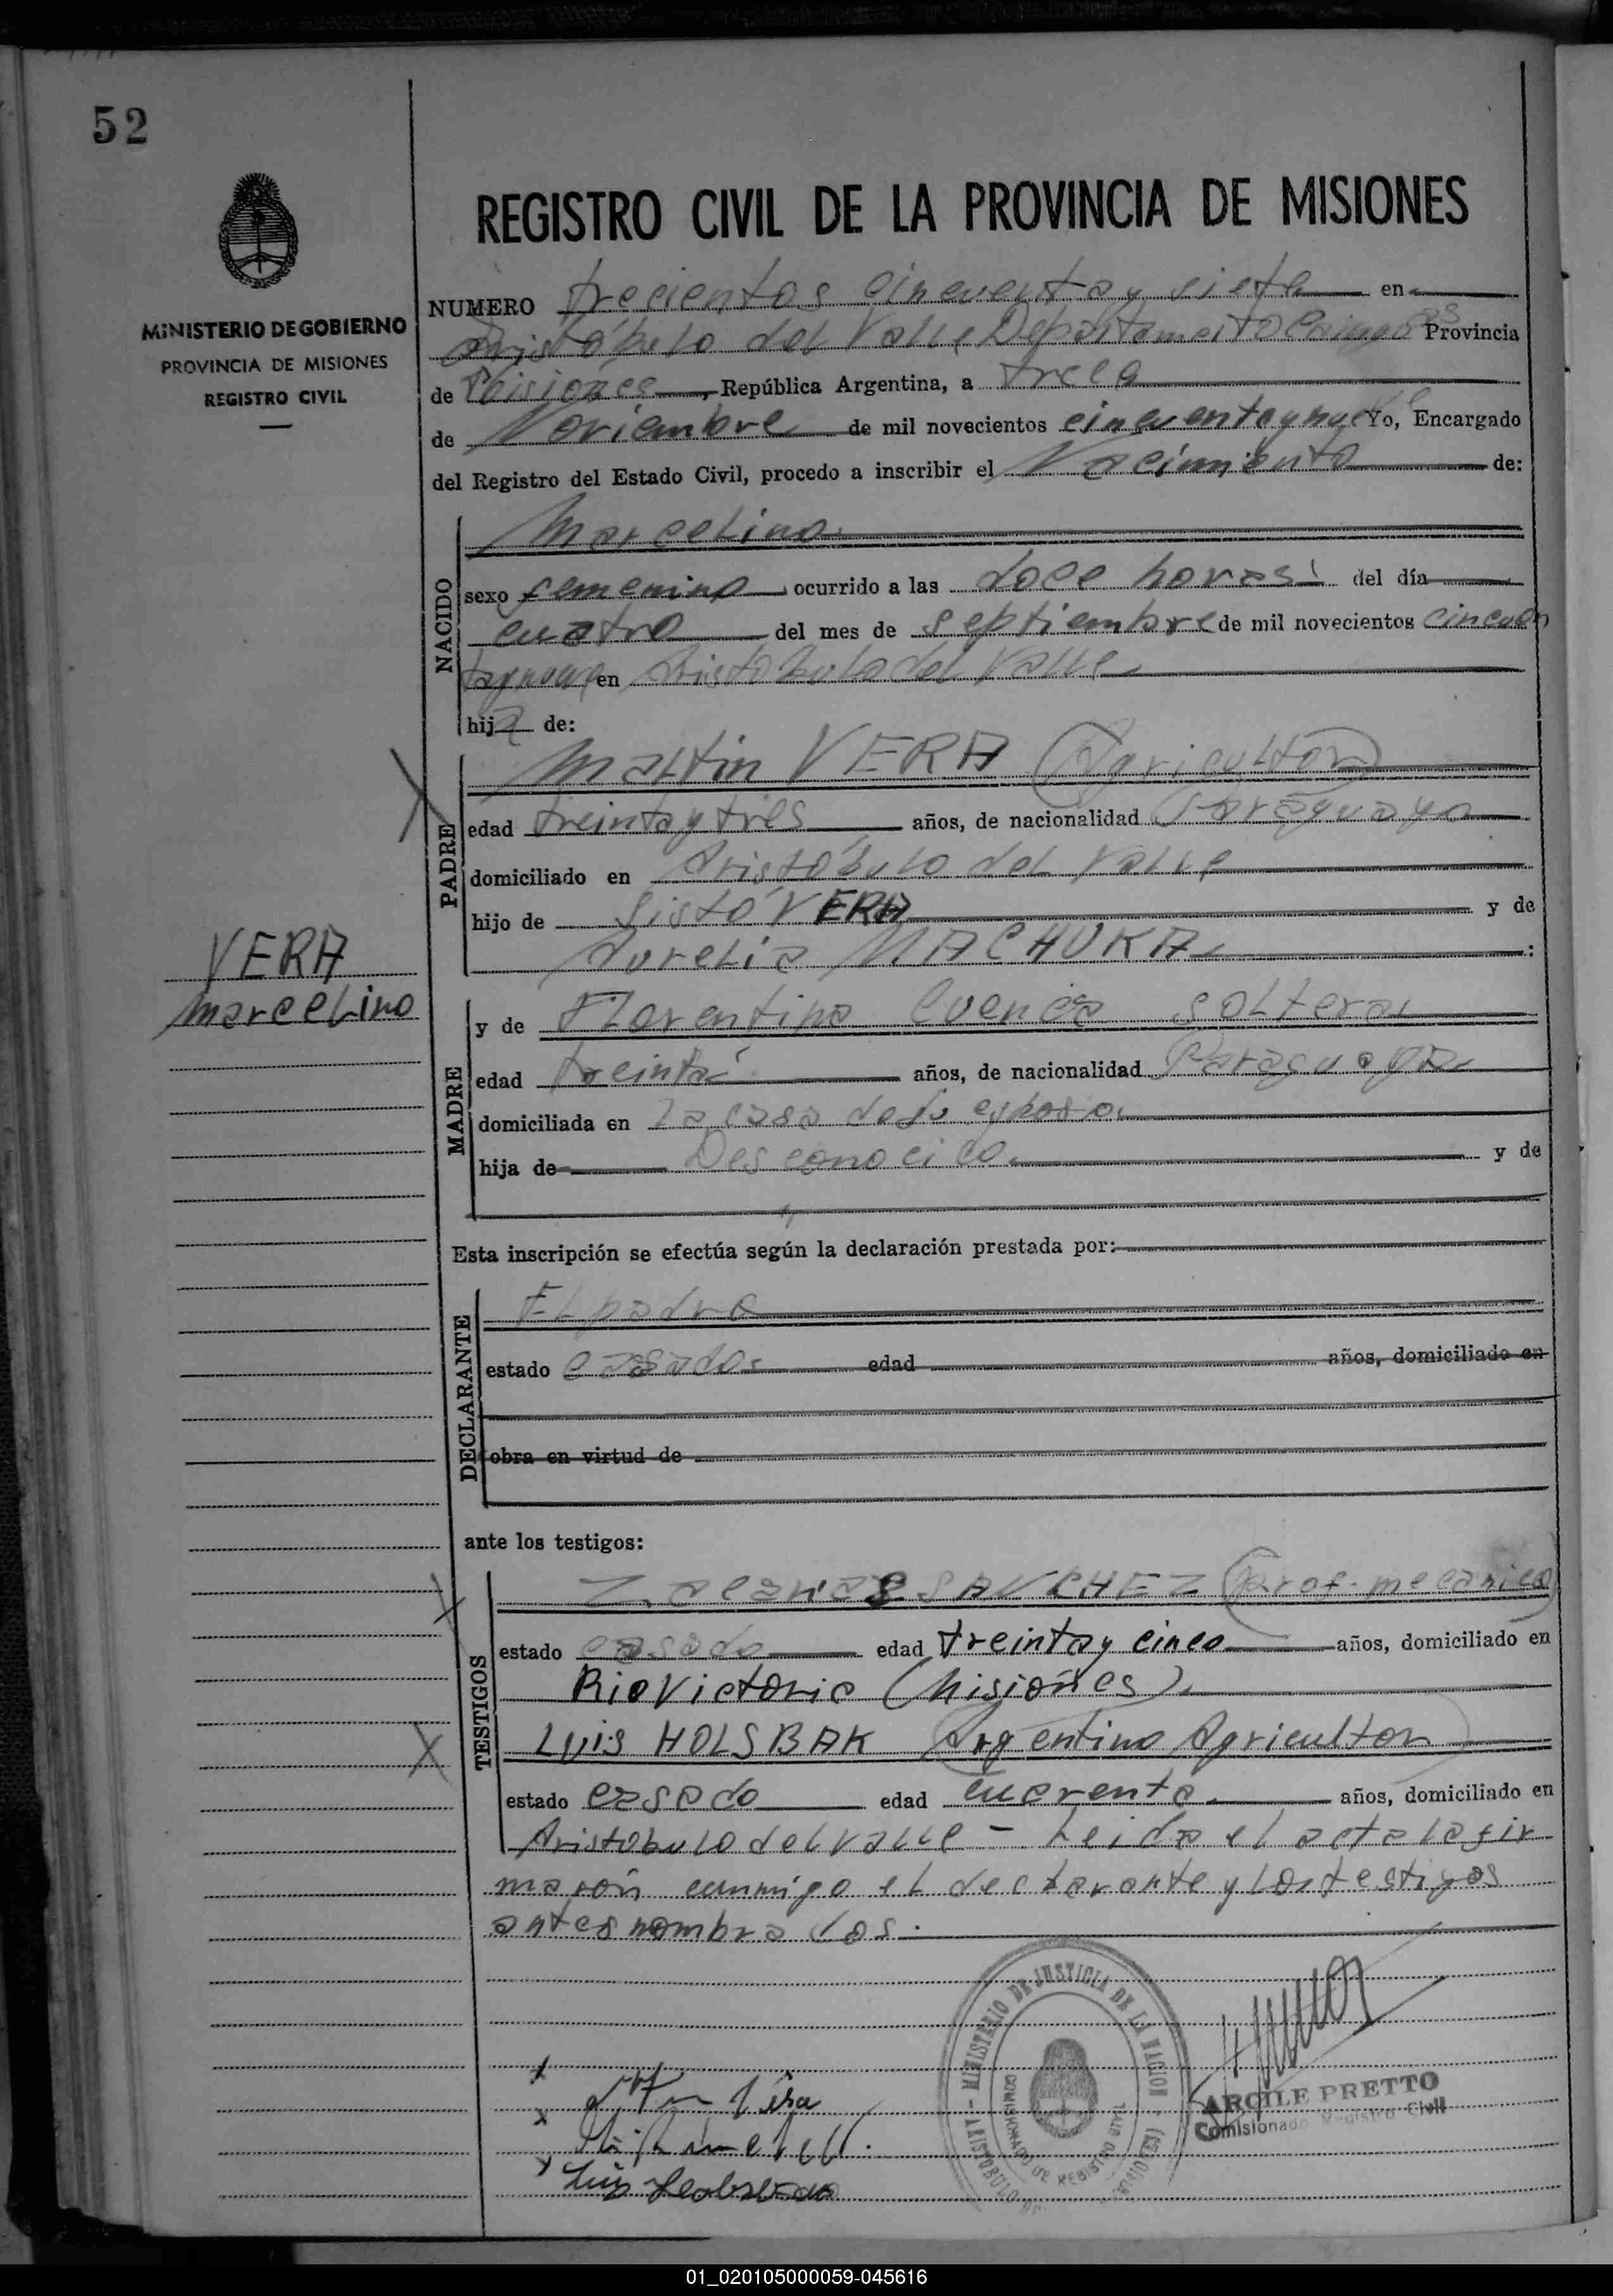 52
MINISTERIO DE GOBIERNO
PROVINCIA DE MISIONES
REGISTRO CIVIL
REGISTRO CIVIL DE LA PROVINCIA DE MISIONES
NUMERO trecientos cincuenta y siete en
Aristóbulo del Valle Departamento Cainguas Provincia
de Misiones, República Argentina, a trece
de Noviembre de mil novecientos cincuentaynueve Yo, Encargado
del Registro del Estado Civil, procedo a inscribir el Nacimiento de:
NACIDO
Marcelina
sexo femenino ocurrido a las doce horas del día
cuatro del mes de septiembre de mil novecientos cincuen
taynueve en Aristóbulo del Valle
hija de:
PADRE
Martin VERA (Agricultor)
edad treinta y tres años, de nacionalidad Paraguayo
domiciliado en Aristóbulo del Valle
hijo de Sisto VERA y de
Aurelia MACHUKA :
VERA
Marcelina
MADRE
y de Florentina Cuenca soltera
edad treinta años, de nacionalidad Paraguaya
domiciliada en la casa de su esposo
hija de Desconocido y de
Esta inscripción se efectúa según la declaración prestada por:
DECLARANTE
El padre
estado casado edad años, domiciliado en
obra en virtud de
ante los testigos:
TESTIGOS
Zacarias SANCHEZ (Prof. mecanico)
estado casado edad treinta y cinco años, domiciliado en
Rio Victoria (Misiones)
Luis HOLSBAK (Argentino Agricultor)
estado casado edad cuarenta años, domiciliado en
Aristobulo del Valle - Leida el acta la fir
maron conmigo el declarante y los testigos
antes nombrados.
MINISTERIO DE JUSTICIA DE LA NACION
COMISIONADO DE REGISTRO CIVIL
ARISTOBULO
ARGILE PRETTO
Comisionado Registro Civil
01_020105000059-045616